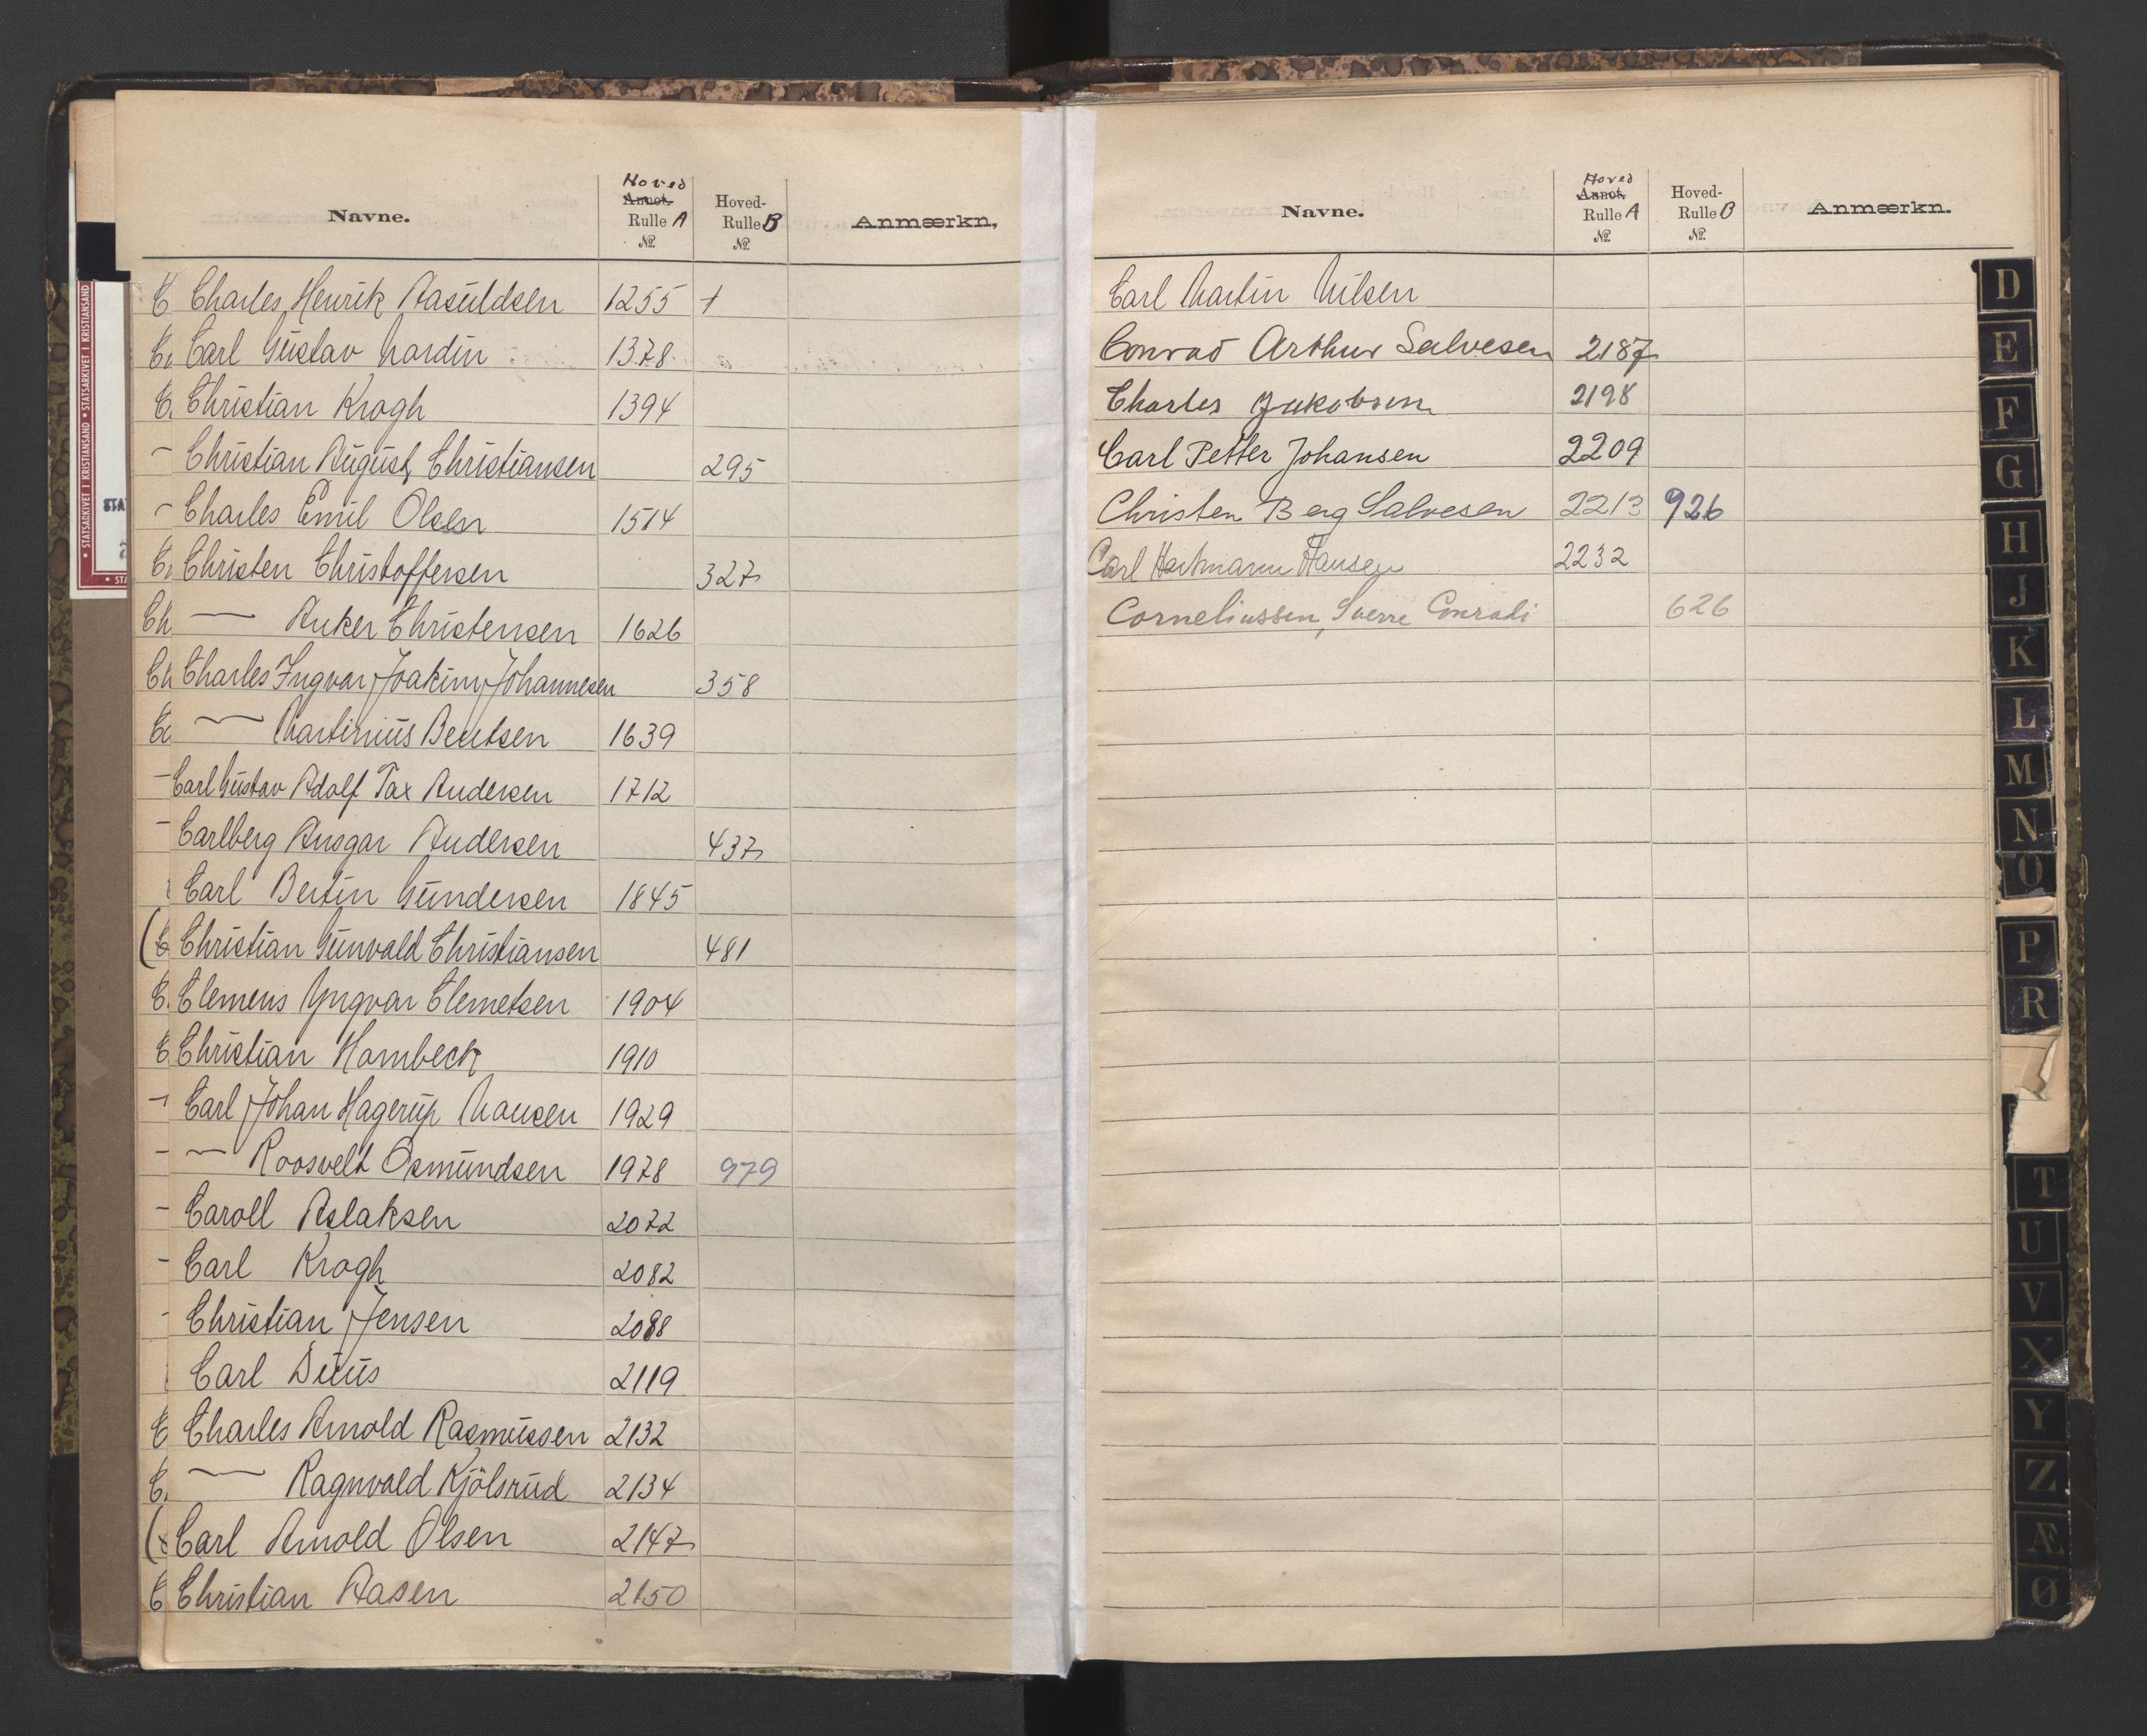 Navne. Hoved Annot. Rulle A № Hoved-Rulle B № Anmærkn,
Charles Henrik Aasuldsen 1255 +
Carl Gustav Nordin 1378
Christian Krogh 1394
Christian August Christiansen 295
Charles Emil Olsen 1514
Christen Christoffersen 327
— Anker Christensen 1626
Charles Ingvar Joakim Johannesen 358
— Martinius Bentsen 1639
Carl Gustav Adolf Tax Andersen 1712
Carlberg Ansgar Andersen 437
Carl Bertin Gundersen 1845
Christian Gunvald Christiansen 481
Clemens Yngvar Clemetsen 1904
Christian Hornbeck 1910
Carl Johan Hagerup Hansen 1929
— Roosvelt Osmundsen 1978 979
Caroll Aslaksen 2072
Carl Krogh 2082
Christian Jensen 2088
Carl Duus 2119
Charles Arnold Rasmussen 2132
— Ragnvald Kjölsrud 2134
Carl Arnold Olsen 2147
Christian Aasen 2150
Navne. Hoved Annot. Rulle A № Hoved-Rulle B № Anmærkn.
Carl Martin Nilsen
Conrad Arthur Salvesen 2187
Charles Jakobsen 2198
Carl Petter Johansen 2209
Christen Berg Salvesen 2213 926
Carl Hartmann Hansen 2232
Corneliussen, Sverre Conradi 626
D
E
F
G
H
J
K
L
M
N
O
P
R
T
U
V
X
Y
Z
Æ
Ø
STATSARKIVET I KRISTIANSAND • STATSARKIVET I KRISTIANSAND